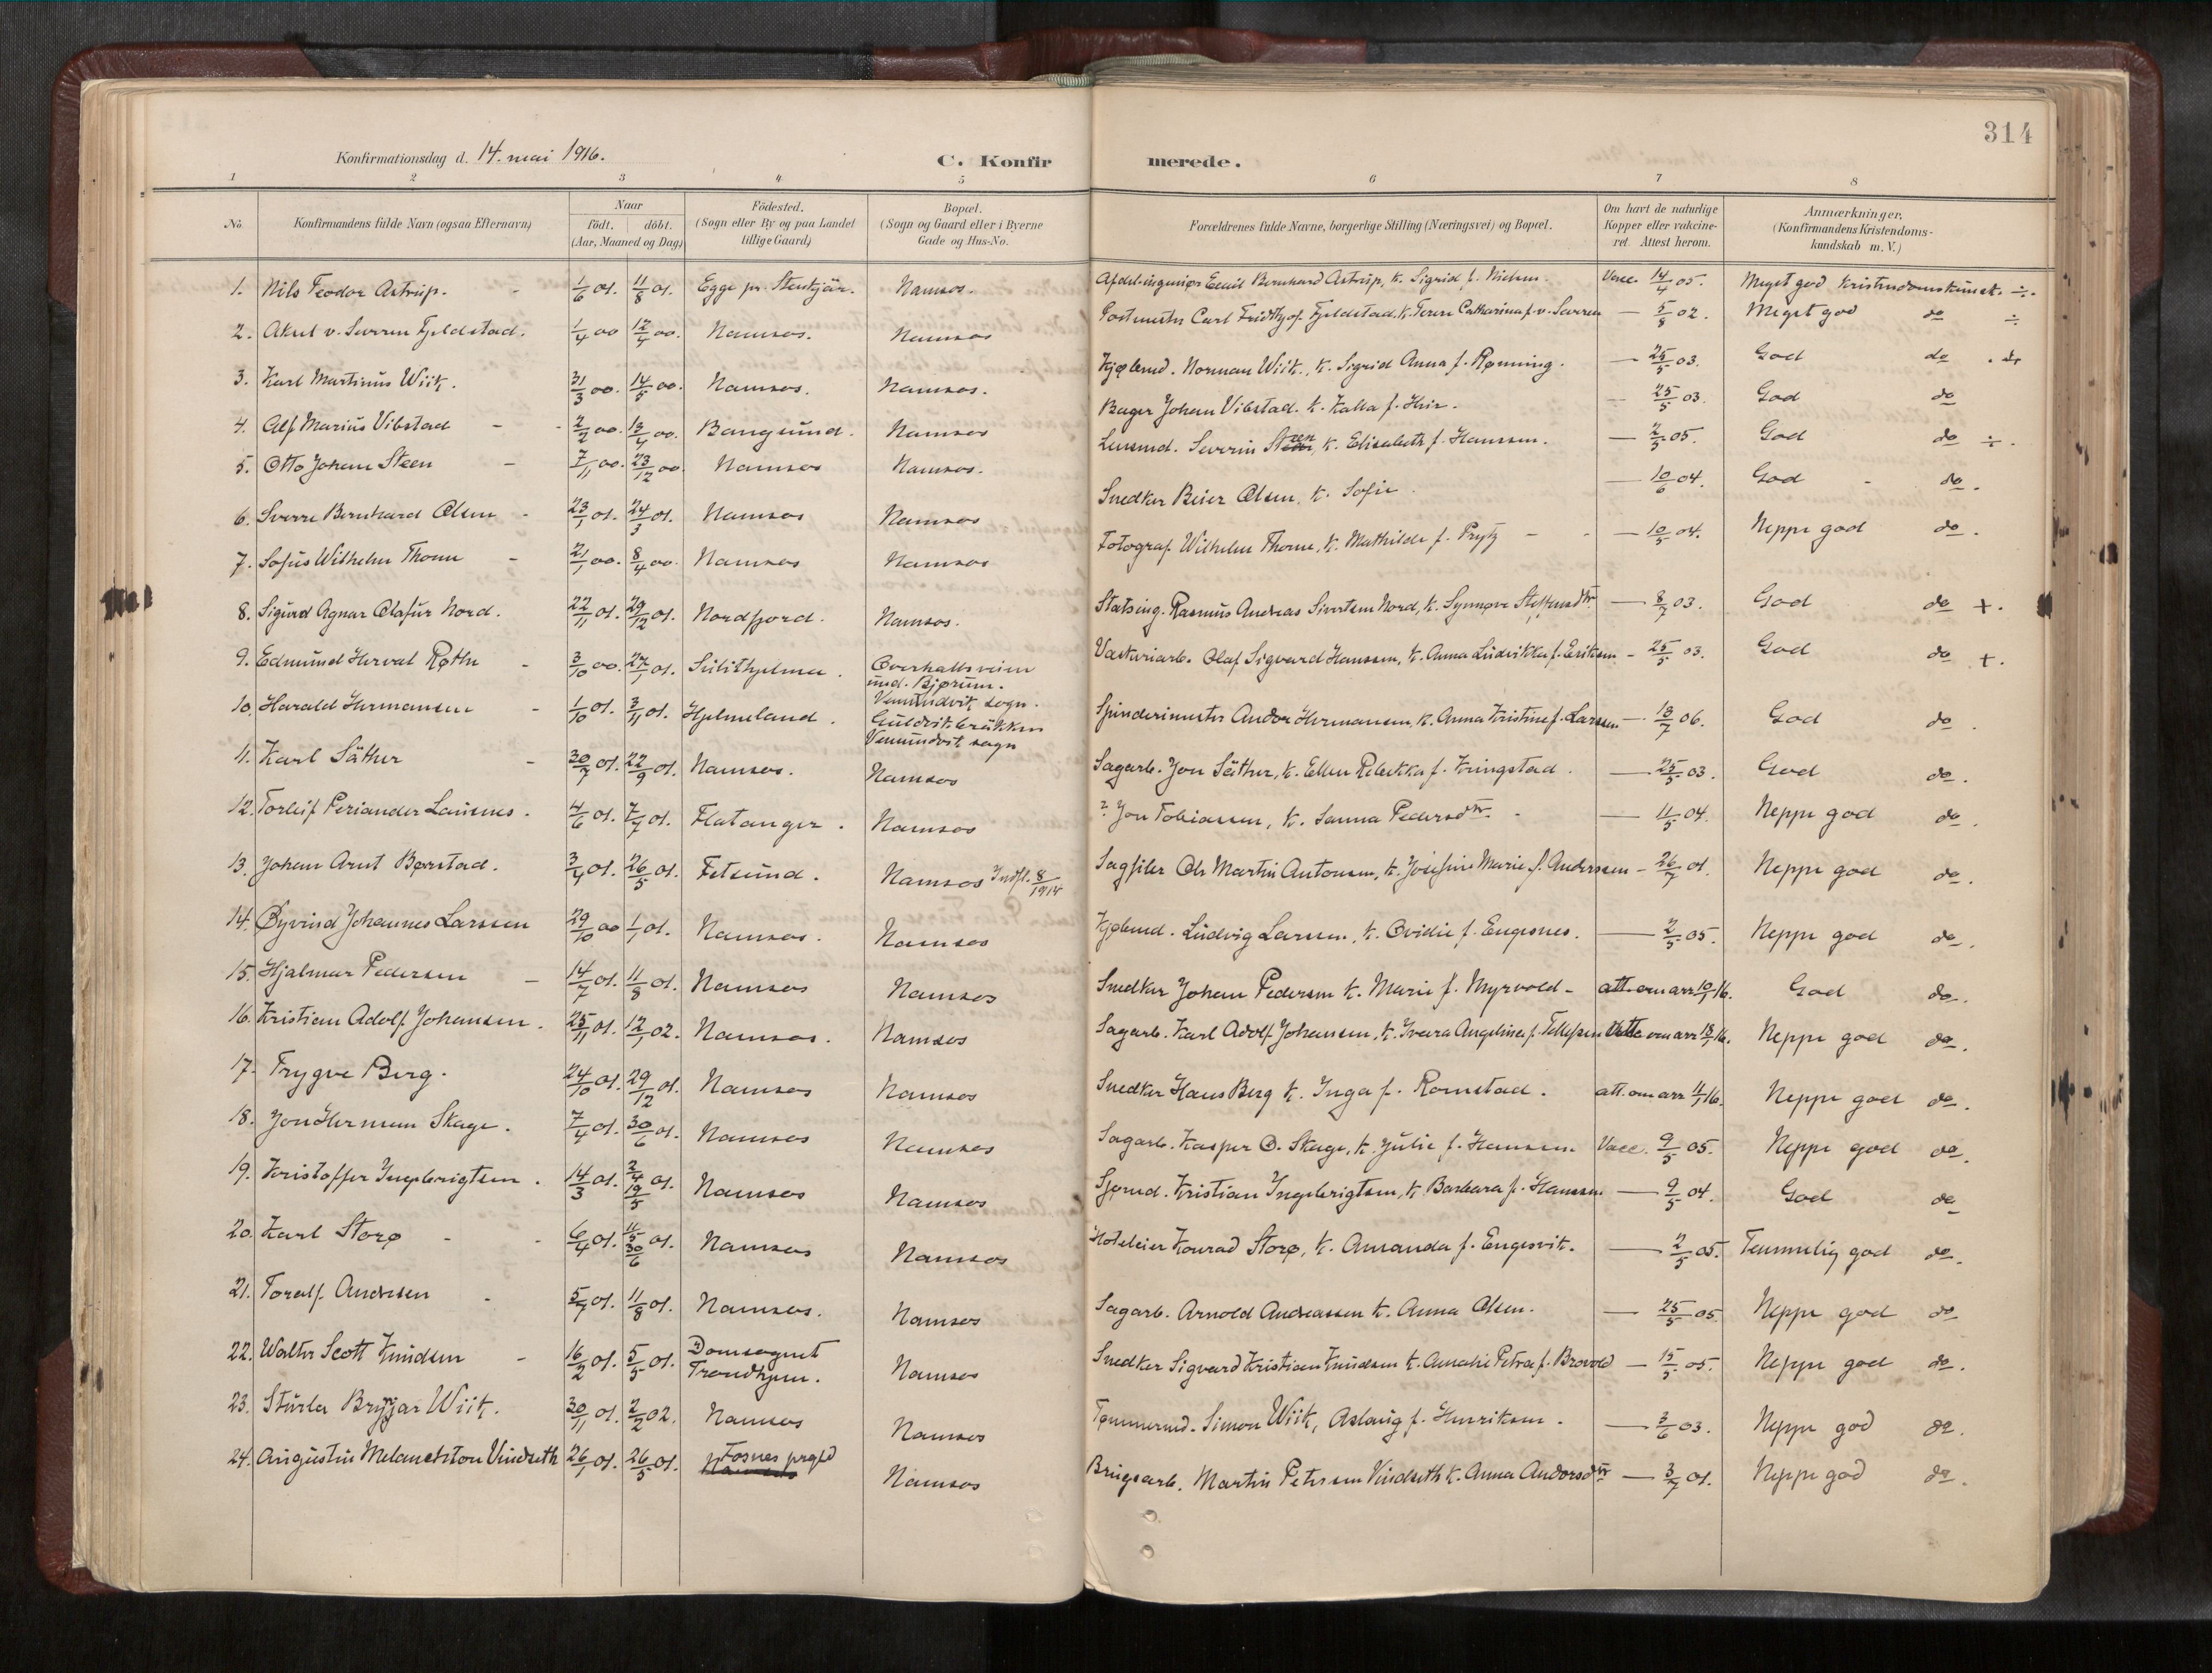 314
Konfirmationsdag d. 14. mai 1916.
C. Konfirmerede.
1 2 3 4 5 6 7 8
No. Konfirmandens fulde Navn (ogsaa Efternavn) Naar födt. döbt. (Aar, Maaned og Dag) Födested. (Sogn eller By og paa Landet tillige Gaard) Bopæl. (Sogn og Gaard eller i Byerne Gade og Hus-No. Forældrenes fulde Navne, borgerlige Stilling (Næringsvei) og Bopæl. Om havt de naturlige Kopper eller vakcineret. Attest herom. Anmærkninger, (Konfirmandens Kristendomskundskab m. V.)
1. Nils Teodor Astrup. 1/6 01. 11/8 01. Egge pr. Stenkjär. Namsos. Afdel.ingeniør Emil Bernhard Astrup, K. Sigrid f. Nielsen. Vacc. 14/4 05. Meget god Kristendomskunsk. ÷.
2. Aksel v. Severen Fjeldstad. 1/4 00 12/4 00. Namsos. Namsos Postmester Carl Fridthjof Fjeldstad. K. Terese Catharina f. v. Severen — 5/8 02. Meget god do ÷
3. Karl Martinus Wiik. 31/3 00. 14/5 00. Namsos. Namsos. Kjølemd. Norman Wiik, K. Sigrid Anna f. Rønning. — 25/5 03. God do
4. Alf Marius Vibstad 2/2 00. 13/4 00. Bangsund. Namsos Bager Johan Vibstad. K. Kalla f. Heir. — 25/5 03. God do
5. Otto Johan Steen 7/11 00. 23/12 00. Namsos Namsos. Severin Steen, K. Elisabeth f. Hanssen. — 2/5 05. God do ÷.
6. Sverre Bernhard Olsen 23/1 01. 24/3 01. Namsos Namsos Snedker Beier Olsen, K. Sofie. — 10/6 04. God do.
7. Sofus Wilhelm Thome 21/1 00. 8/4 00. Namsos Namsos Fotograf Wilhelm Thome, K. Mathilde f. Prytz — 10/5 04. Neppe god do.
8. Sigurd Agnar Olafur Nord. 22/11 01. 29/12 01. Nordfjord. Namsos. Statsing. Rasmus Andreas Sivertsen Nord, K. Synnøve Steffensdtr. — 8/7 03. God do +.
9. Edmund Herval Røthe 3/10 00. 27/1 01. Sulithjelma. Overhallsveien und. Bjørum. Vemundvik sogn. Olaf Sigvard Hanssen, K. Anna Ludvikka f. Eriksen — 25/5 03. God do +.
10. Harald Hermansen 1/10 01. 3/11 01. Hjelmeland. Guldvikbräkken Vemundvik sogn Spinderimester Andor Hermansen, K. Anna Kristine f. Larssen — 18/7 06. God do.
11. Karl Säther 30/7 01. 22/9 01. Namsos. Namsos Sagarb. Jon Säther, K. Ellen Rebekka f. Kringstad. — 25/5 03. God do.
12. Torleif Periander Lausnes. 4/6 01. 7/7 01. Flatanger. Namsos ? Jon Tobiassen, K. Sanna Pedersdtr. — 11/5 04. Neppe god do.
13. Johan Arnt Børstad. 3/4 01. 26/5 01. Fetsund. Namsos Indfl. 8/1914 Sagfiler Ole Martin Antonsen, K. Josefine Marie f. Anderssen — 26/7 01. Neppe god do.
14. Øyvind Johannes Larssen 29/10 00 1/1 01. Namsos. Namsos Kjølemd. Ludvig Larssen, K. Ovidie f. Engesnes. — 2/5 05. Neppe god do.
15. Hjalmar Pedersen 14/7 01. 11/8 01. Namsos Namsos Snedker Johan Pedersen K. Marie f. Myrvold — att. om arr 10/1 16. God do.
16. Kristian Adolf Johansen. 25/11 01. 12/1 02. Namsos. Namsos Sagarb. Karl Adolf Johansen, K. Ivara Angelina f. Tellefsen att. om arr 18/1 16. Neppe god do.
17. Trygve Berg. 24/10 01. 29/12 01. Namsos Namsos Snedker Hans Berg K. Inga f. Romstad. att. om arr 11/1 16. Neppe god do.
18. Jon Herman Skage. 7/4 01. 30/6 01. Namsos Namsos Sagarb. Kasper O. Skage, K. Julie f. Hansen. Vacc. 9/5 05. Neppe god do.
19. Kristoffer Ingebrigtsen. 14/3 01. 2/4 19/5 01. Namsos Namsos Sjømd. Kristian Ingebrigtsen, K. Barbara f. Hanssen — 9/5 04. God do
20. Karl Storø 6/4 01. 11/5 30/6 01. Namsos Namsos Hoteleier Konrad Storø, K. Amanda f. Engesvik. — 2/5 05. Temmelig god do.
21. Toralf Andresen 5/7 01. 11/8 01. Namsos. Namsos Sagarb. Arnold Andreassen K. Anna Olsen. — 25/5 05 Neppe god do
22. Walter Scott Knudsen 16/2 01. 5/5 01. Domsognet Trondhjem. Namsos Snedker Sigvard Kristian Knudsen K. Amalie Petra f. Brovold — 15/5 05. Neppe god do.
23. Sturla Brynjar Wiik. 30/11 01. 2/2 02. Namsos Namsos Tømmermd. Simon Wiik, Aslaug f. Henriksen. — 3/6 03. Neppe god do.
24. Augustin Melanchton Vindseth 26/1 01. 26/5 01. Fosnes prgld Namsos Namsos Brugsarb. Martin Petersen Vindseth K. Anna Andorsdtr — 3/7 01. Neppe god do.